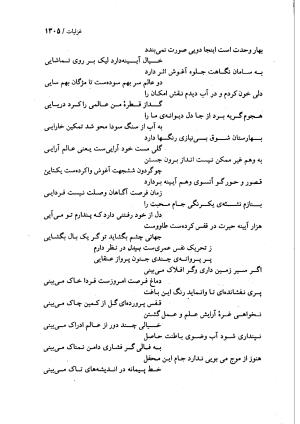 غزلیات / ۱۳۰۵
بهار وحدت است اینجا دویی صورت نمی‌بندد
خیال آیینه‌دارد لیک بر روی تماشایی
به سامان نگاهت جلوه آغوش اثر دارد
دو عالم سر بهم سوده‌ست تا مژگان بهم سایی
دلی خون کردم و در آب دیدم نقش امکان را
گداز قطرهٔ من عالمی را کرد دریایی
هجوم گریه برد از جا دل دیوانه‌ی ما را
به آب از سنگ سودا محو شد تمکین خارایی
بهارستان شوق بی‌نیازی رنگها دارد
گلی مست خود آرایی‌ست یعنی عالم آرایی
به وهم غیر ممکن نیست انداز برون جستن
چو گردون ششجهت آغوش واکرده‌ست یکتایی
قصور و حور گو آنسوی وهم آیینه بردارد
زمان فرصت آگاهان وصلت نیست فردایی
بنازم نشئه‌ی یکرنگی جام محبت را
دل از خود رفتنی دارد که پندارم تو می‌آیی
هزار آیینه حیرت در قفس کرده‌ست طاووست
جهانی چشم بگشاید تو گر یک بال بگشایی
ز تحریک نفس عمری‌ست بیدل در نظر دارم
پر پروانه‌ی چندی جنون پرواز عنقایی
اگر سیر زمین داری وگر افلاک می‌بینی
دماغ فرصت امروزست فردا خاک می‌بینی
پری نفشانده‌ای تا وانماید رنگ این باغت
قفس پرورده‌ای گل از کمین چاک می‌بینی
نخواهی غرهٔ آرایش علم و عمل گشتن
خیالی چند دور از عالم ادراک می‌بینی
نپنداری شود آب وضوی باطنت حاصل
به فالی گر فشاری دامن نمناک می‌بینی
هنوز از موج می بویی ندارد جام این محفل
خط پیمانه در اندیشه‌های تاک می‌بینی